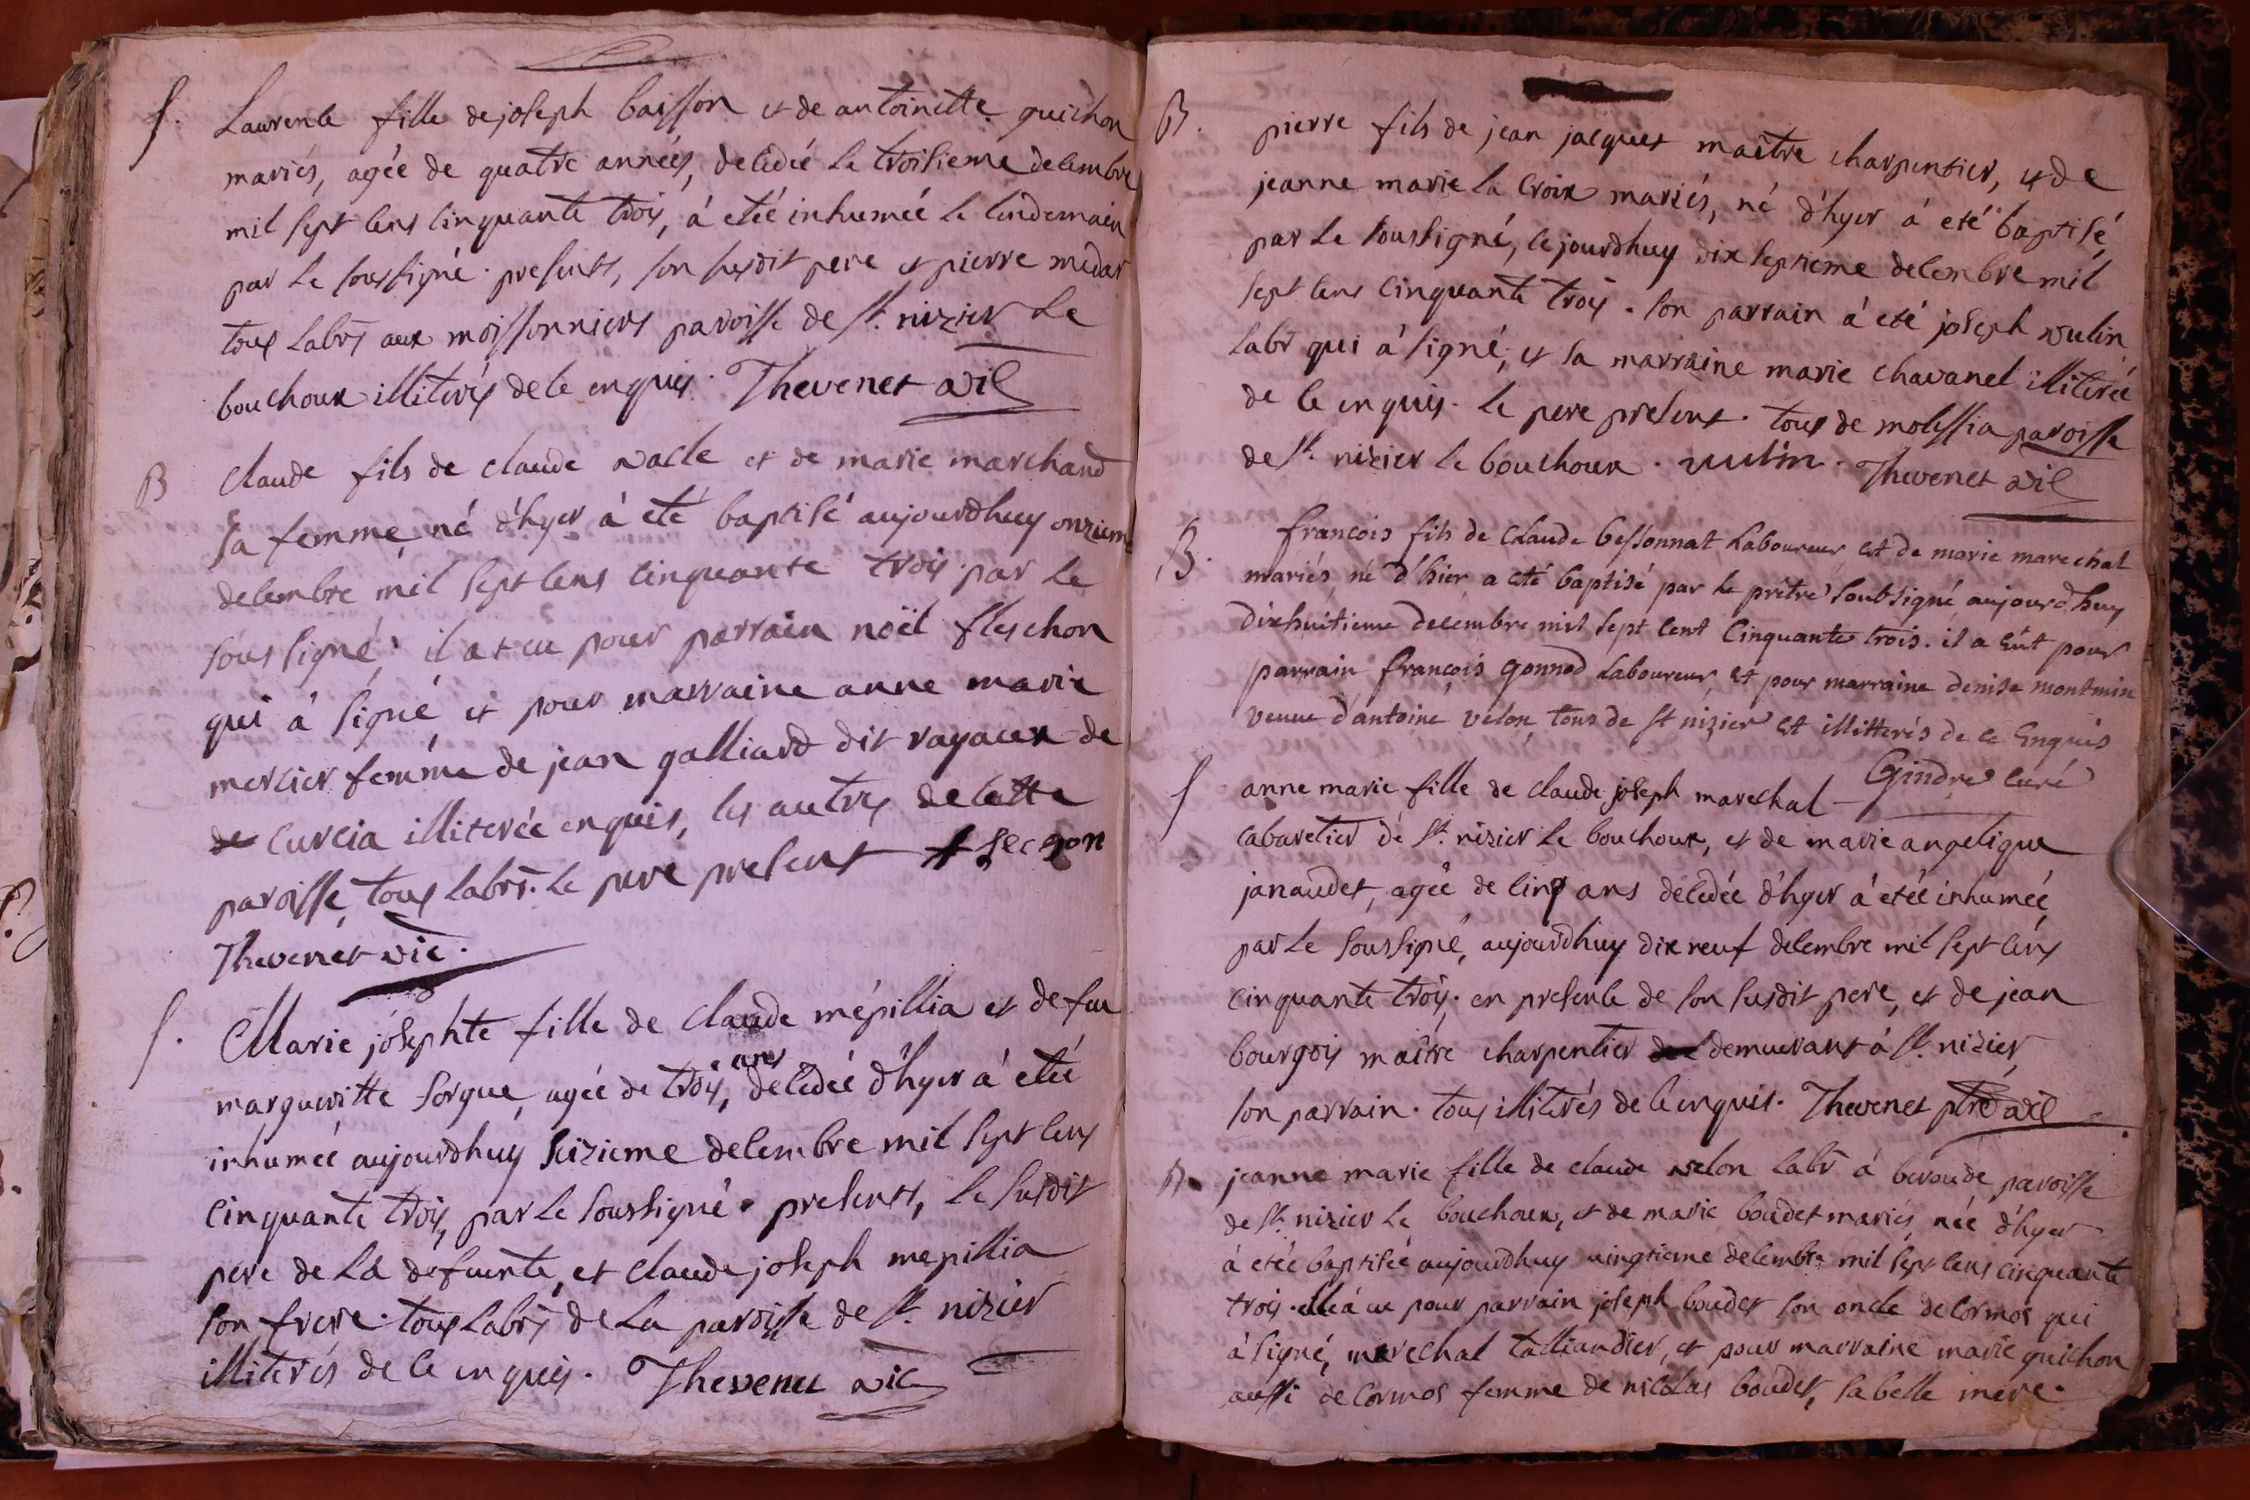 S. Laurence fille de joseph baisson et de antoinette guichon
mariés, agée de quatre années, decedée le troisieme decembre
mil sept cens cinquante trois, à etée inhumée le lendemain
par le soussigné. presents, son susdit pere et pierre medar
tous labrs aux moissonniers paroisse de st. nizier le
bouchoux illiterés de ce enquis. Thevenet vic
B Claude fils de claude vacle et de marie marchand
sa femme, né d'hyer à eté baptisé aujourdhuy onziem
decembre mil sept cens cinquante trois par le
soussigné. il a eu pour parrain noël fleschon
qui à signé et pour marraine anne marie
mercier femme de jean galliard dit vayaux de
de curcia illiterée enquis, les autres de cette
paroisse, tous labrs. le pere present
Thevenet vic.
S. Marie josephte fille de claude mépillia et de feu
margueritte sorgue, agée de trois ans, decedée d'hyer à etée
inhumée aujourdhuy seizieme decembre mil sept cens
cinquante trois, par le soussigné. presents, le susdit
pere de la defuncte, et claude joseph mepillia
son frere. tous labrs de la paroisse de st. nizier
illiterés de ce enquis. Thevenet vic
B. pierre fils de jean jacques maître charpentier, et de
jeanne marie la croix mariés, né d'hyer à eté baptisé
par le soussigné, cejourdhuy dix septieme decembre mil
sept cens cinquante trois. son parrain à eté joseph vulin
labr qui à signé, et sa marraine marie chavanel illiterée
de ce enquis. le pere present. tous de molissia paroisse
de st. nizier le bouchoux. vulin. Thevenet vic
B. françois fils de Claude bessonnat Laboureur et de marie marechal
mariés né d'hier a eté baptisé par le prêtre soubsigné aujourd'huy
dixhuitieme decembre mil sept cent cinquante trois. il a eut pour
parrain françois gonnod Laboureur et pour marraine denise montmin
veuve d'antoine velon tous de st nizier et illitterés de ce Enquis
Gindre curé
S anne marie fille de claude joseph marechal
cabaretier de st. nizier le bouchoux, et de marie angelique
janaudet, agée de cinq ans decedée d'hyer à etée inhumée
par le soussigné, aujourdhuy dix neuf decembre mil sept cens
cinquante trois. en presence de son susdit pere, et de jean
bourgois maître charpentier demeurant à st. nizier,
son parrain. tous illiterés de ce enquis. Thevenet ptre vic
B. jeanne marie fille de claude velon labr à beroude paroisse
de st. nizier le bouchoux, et de marie boudet mariés, née d'hyer
à etée baptisée aujourdhuy vingtieme decembre mil sept cens cinquante
trois. elle à eu pour parrain joseph boudet son oncle de cormos qui
à signé, marechal talliandier, et pour marraine marie guichon
aussi de cormos femme de nicolas boudet, sa belle mere.